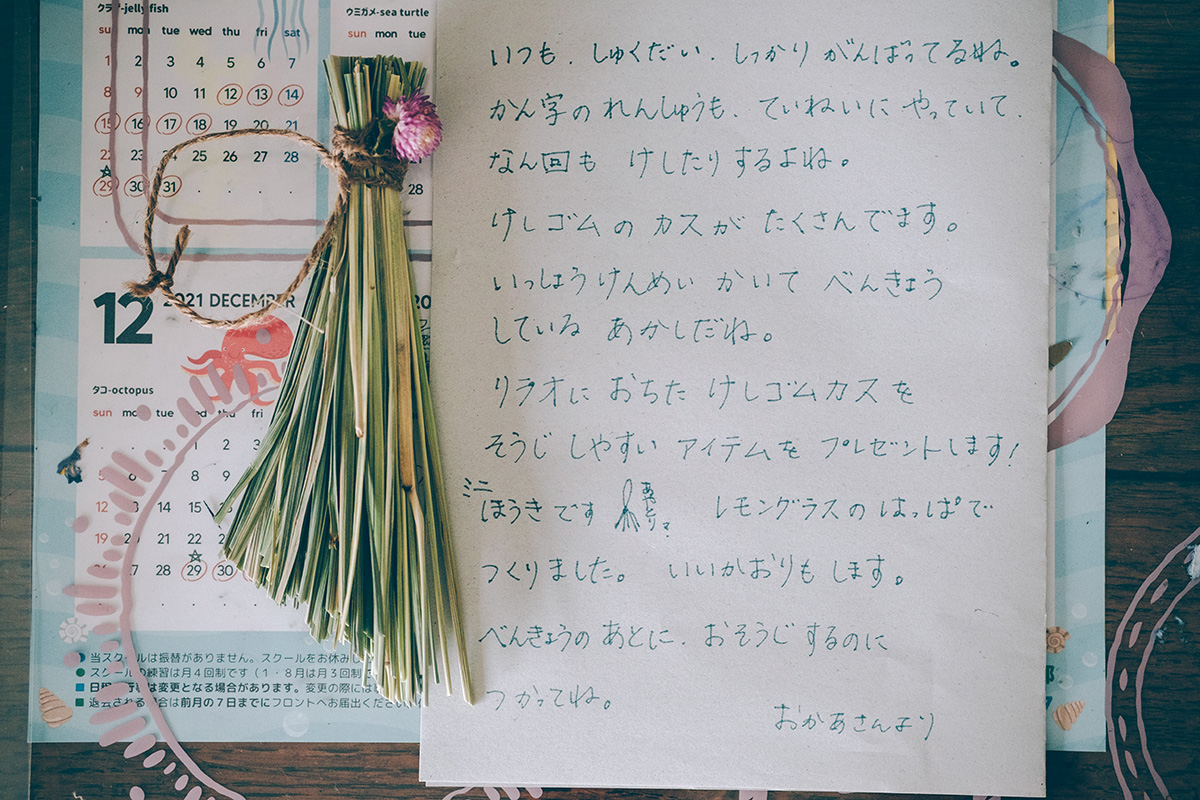 クラゲ-jelly fish
sun mon tue wed thu fri sat
1 2 3 4 5 6 7
8 9 10 11 12 13 14
15 16 17 18 19 20 21
22 23 24 25 26 27 28
29 30 31
ウミガメ-sea turtle
sun mon tue
28
12 2021 DECEMBER
20
タコ-octopus
sun mon tue wed thu fri
1 2 3
5 6 7 8 9
12 13 14 15
19 20 21 22 23
26 27 28 29 30
●当スクールは振替がありません。スクールをお休みし
●スクールの練習は月4回制です(1・8月は月3回制
は変更となる場合があります。変更の際には
■退会される場合は前月の7日までにフロントへお届出ください
いつも、しゅくだい、しっかり がんばってるね。
かん字の れんしゅうも、ていねいに やっていて、
なん回も けしたりするよね。
けしゴムの カスが たくさんでます。
いっしょうけんめい かいて べんきょう
している あかしだね。
リラオに おちた けしゴムカスを
そうじ しやすい アイテムを プレゼントします!
ミニ
ほうきです レモングラスの はっぱで
つくりました。 いいかおりも します。
べんきょうの あとに、おそうじ するのに
つかってね。
おかあさんより